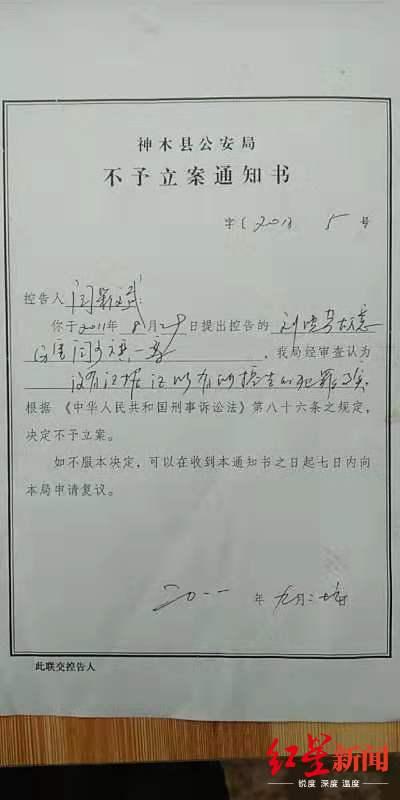 神木县公安局
不予立案通知书
字〔2011 5 号
控告人
你于2011年8月29日提出控告的
一案 ，我局经审查认为
没有证据证明有所控告的犯罪事实
根据《中华人民共和国刑事诉讼法》第八十六条之规定，
决定不予立案。
如不服本决定，可以在收到本通知书之日起七日内向
本局申请复议。
二〇一一 年 九月二
此联交控告人
红星新闻
锐度 深度 温度